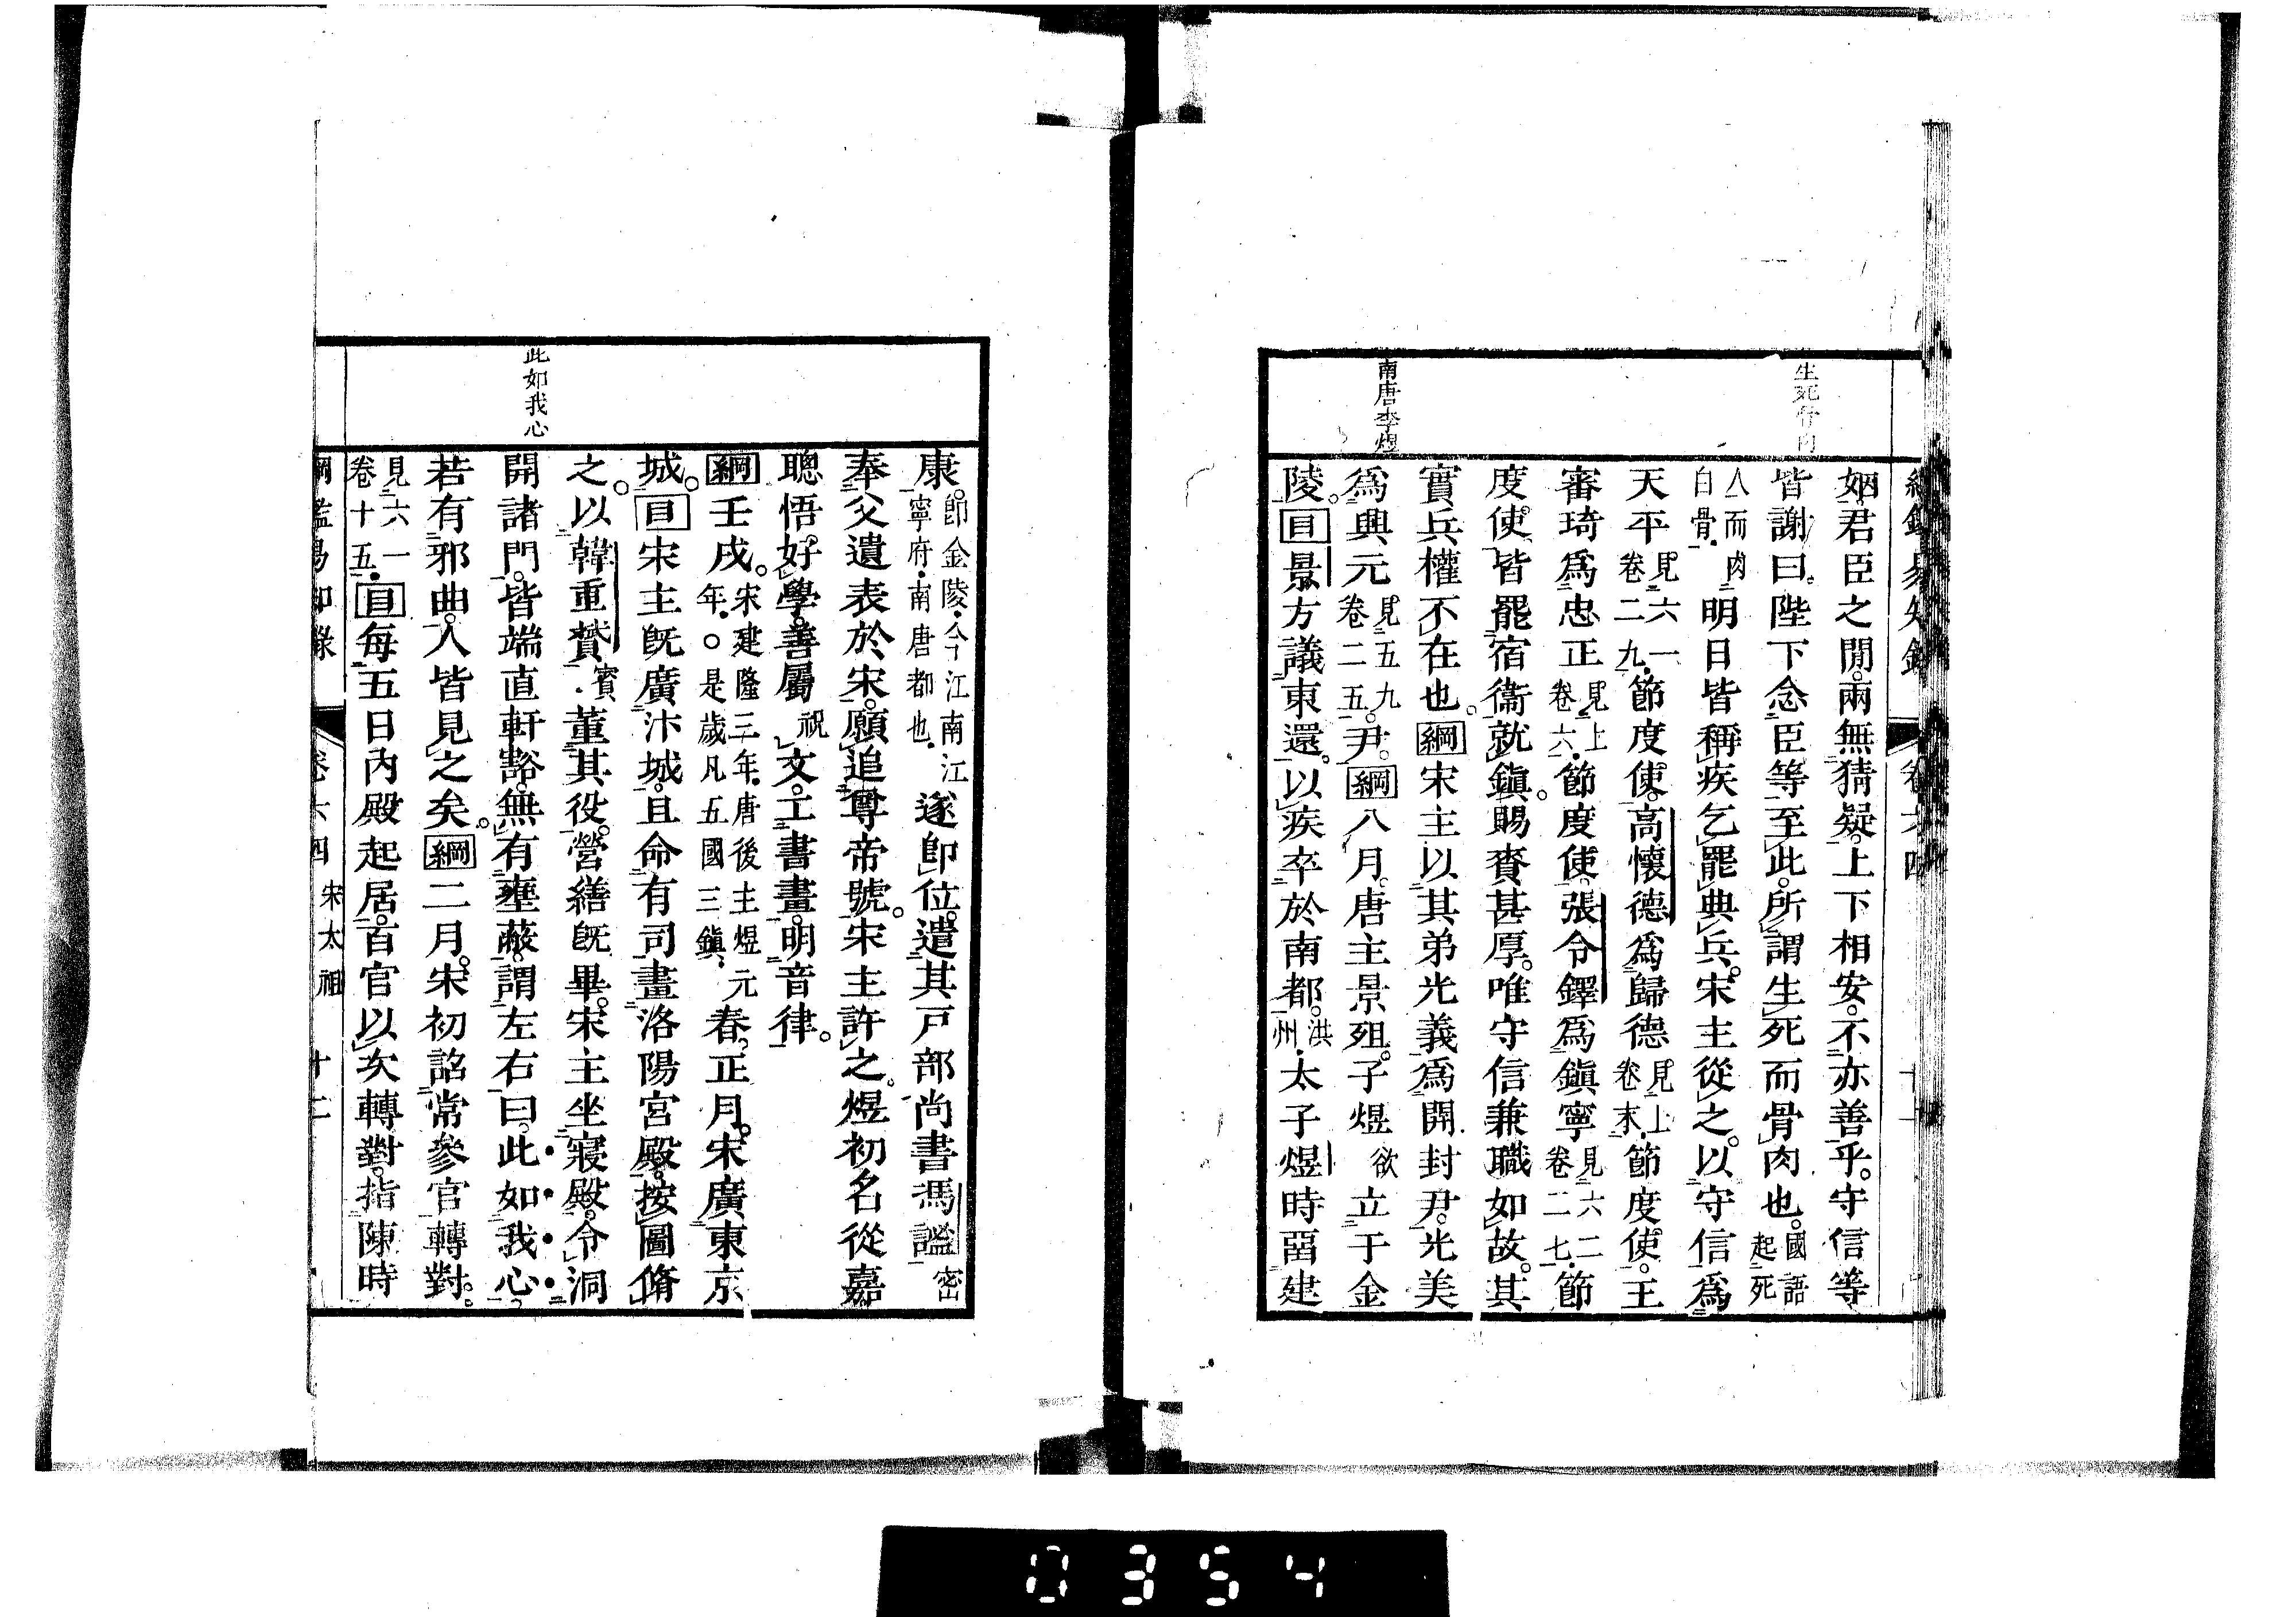 生死骨肉
南唐李煜
姻君臣之閒兩無猜疑上下相安不亦善乎守信等
皆謝曰陛下念臣等至此所謂生死而骨肉也國語起死
人而肉白骨明日皆稱疾乞罷典兵宋主從之以守信爲
天平見六一卷二九節度使高懷德爲歸德見上卷末節度使王
審琦爲忠正見上卷六節度使張令鐸爲鎮寧見六二卷二七節
度使皆罷宿衞就鎮賜賚甚厚唯守信兼職如故其
實兵權不在也綱宋主以其弟光義爲開封尹光美
爲興元見五九卷二五尹綱八月唐主景殂子煜欲立于金
陵目景方議東還以疾卒於南都洪州太子煜時留建
此如我心
康即金陵今江南江寧府南唐都也遂即位遣其戸部尚書馮謐密
奉父遺表於宋願追尊帝號宋主許之煜初名從嘉
聰悟好學善屬祝文工書畫明音律
綱壬戌宋建隆三年唐後主煜元年○是歲凡五國三鎮春正月宋廣東京
城目宋主旣廣汴城且命有司畫洛陽宮殿按圖脩
之以韓重贇賓董其役營繕旣畢宋主坐寢殿令洞
開諸門皆端直軒豁無有壅蔽謂左右曰此如我心
若有邪曲人皆見之矣綱二月宋初詔常參官轉對
見六一卷十五目每五日內殿起居百官以次轉對指陳時
綱鑑易知錄 卷六四 宋太祖 十二
0354